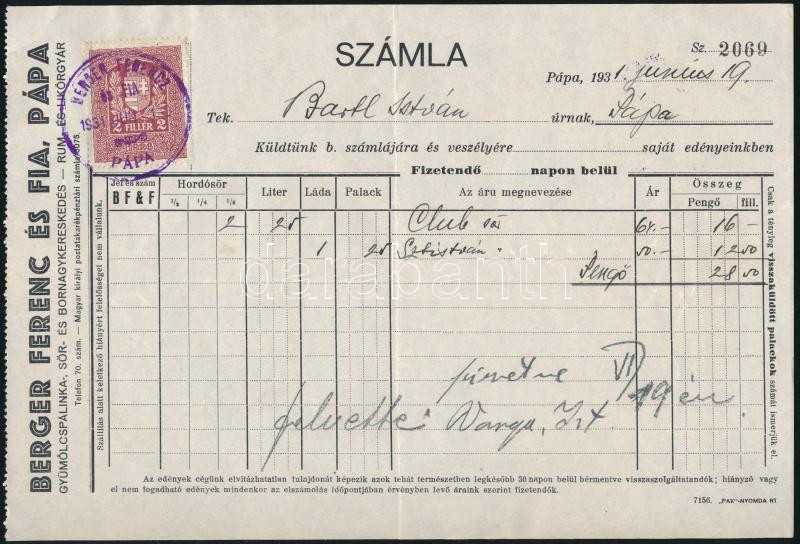 BERGER FERENC ÉS FIA, PÁPA
GYÜMÖLCSPÁLINKA-, SÖR- ÉS BORNAGYKERESKEDÉS — RUM- ÉS LIKŐRGYÁR
Telefon 70. szám. — Magyar királyi postatakarékpénztári számla
BERGER FERENCZ
és FIA
1931
PÁPA
2 FILLÉR 2
SZÁMLA
Sz. 2069
Pápa, 1931. junius 19.
Tek. Bartl István úrnak, Pápa
Küldtünk b. számlájára és veszélyére saját edényeinkben
Fizetendő napon belül
Jel és szám
B F & F
Hordósör
1/2 1/4 1/8
Liter
Láda
Palack
Az áru megnevezése
Ár
Összeg
Pengő
fill.
2 25 Club sör 64.— 16 —
1 25 Sztistván " 50.— 12 50
Pengő 28 50
fizetve VI/19én
felvette: Varga Ist.
Szállítás alatt keletkező hiányért felelősséget nem vállalunk.
Csak a tényleg visszaküldött palackok számát ismerjük el.
Az edények cégünk elvitázhatatlan tulajdonát képezik azok tehát természetben legkésőbb 30 napon belül bérmentve visszaszolgáltatandók; hiányzó vagy
el nem fogadható edények mindenkor az elszámolás időpontjában érvényben levő áraink szerint fizetendők.
7156. „PAX"-NYOMDA RT.
darabanth